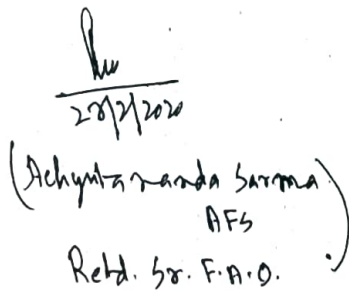 28/2/2020
(Achyutananda Sarma
AFS
Retd. Sr. F.A.O.)